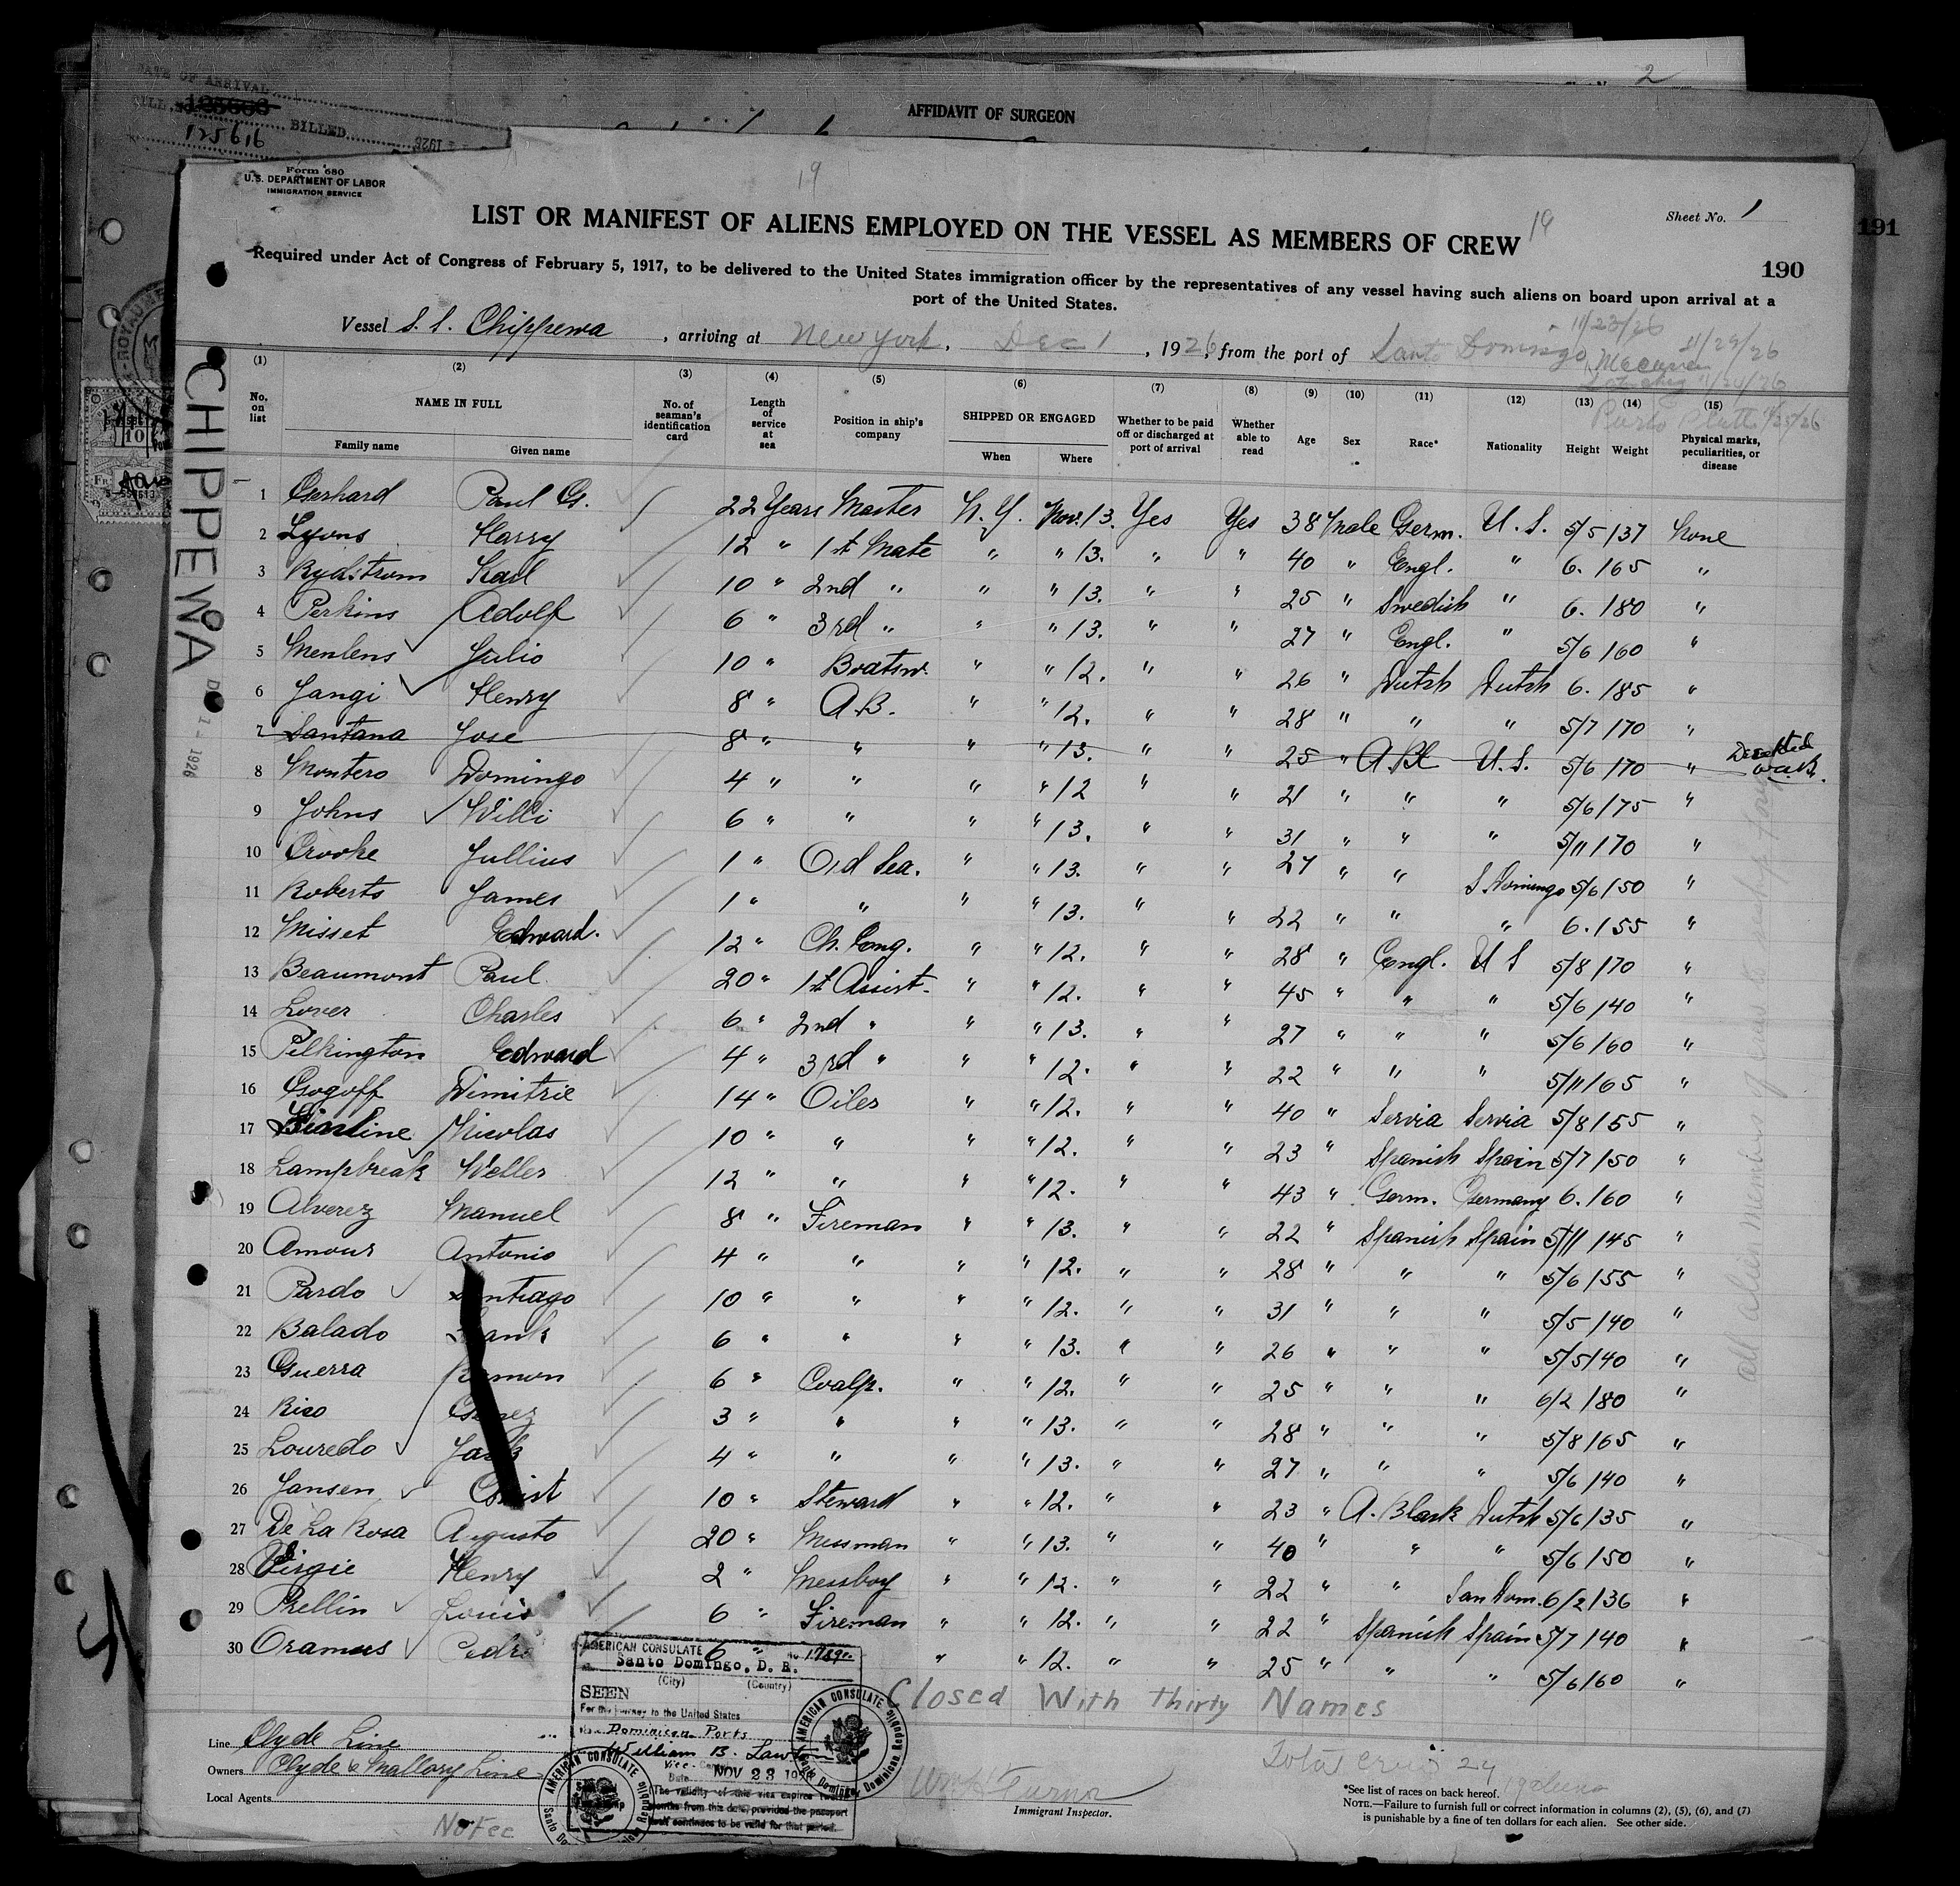 2
DATE OF ARRIVAL
125616
BILLED
1926
AFFIDAVIT OF SURGEON
191
Form 680
U.S. DEPARTMENT OF LABOR
IMMIGRATION SERVICE
19
LIST OR MANIFEST OF ALIENS EMPLOYED ON THE VESSEL AS MEMBERS OF CREW
19
Sheet No. 1
190
Required under Act of Congress of February 5, 1917, to be delivered to the United States immigration officer by the representatives of any vessel having such aliens on board upon arrival at a
port of the United States.
Vessel S. S. Chippewa, arriving at New York, Dec 1, 1926, from the port of Santo Domingo 11/23/26
11/29/26
11/24/26
Puerto Platta 11/25/26
CHIPPEWA
1 - 1926
(1) (2) (3) (4) (5) (6) (7) (8) (9) (10) (11) (12) (13) (14) (15)
No. on list NAME IN FULL No. of seaman's identification card Length of service at sea Position in ship's company SHIPPED OR ENGAGED Whether to be paid off or discharged at port of arrival Whether able to read Age Sex Race* Nationality Height Weight Physical marks, peculiarities, or disease
Family name Given name When Where
1 Gerhard Paul G. 22 Years Master N. Y. Nov. 13. Yes Yes 38 Male Germ. U. S. 5/5 137 None
2 Lyons Harry 12 " 1st Mate " " 13. " " 40 " Engl. " 6. 165 "
3 Rydstrom Karl 10 " 2nd " " " 13. " " 25 " Swedish " 6. 180 "
4 Perkins Adolf 6 " 3rd " " " 13. " " 27 " Engl. " 5/6 160 "
5 Menlens Julio 10 " Boatsw. " " 12. " " 26 " Dutch Dutch 6. 185 "
6 Jangi Henry 8 " A.B. " " 12. " " 28 " " " 5/7 170 "
7 Santana Jose 8 " " " " 13. " " 25 " A. Bl. U. S. 5/6 170 "
8 Montero Domingo 4 " " " " 12 " " 21 " " " 5/6 175 "
9 Johns Willi 6 " " " " 13. " " 31 " " " 5/11 170 "
10 Crooke Jullius 1 " Ord Sea. " " 13. " " 27 " " S. Domingo 5/6 150 "
11 Roberts James 1 " " " " 13. " " 22 " " " 6. 155 "
12 Misset Edward. 12 " Ch. Eng. " " 12. " " 28 " Engl. U S 5/8 170 "
13 Beaumont Paul. 20 " 1st Assist. " " 12. " " 45 " " " 5/6 140 "
14 Lover Charles 6 " 2nd " " " 13. " " 27 " " " 5/6 160 "
15 Pilkington Edward 4 " 3rd " " " 12. " " 22 " " " 5/11 165 "
16 Gogoff Dimitrie 14 " Oiler " " 12. " " 40 " Servia Servia 5/8 155 "
17 Nicolas 10 " " " " 12. " " 23 " Spanish Spain 5/7 150 "
18 Lampbreak Weller 12 " " " " 12. " " 43 " Germ. Germany 6. 160 "
19 Alverez Manuel 8 " Fireman " " 13. " " 22 " Spanish Spain 5/11 145 "
20 Amour Antonio 4 " " " " 12. " " 28 " " " 5/6 155 "
21 Pardo Santiago 10 " " " " 12. " " 31 " " " 5/5 140 "
22 Balado Frank 6 " " " " 13. " " 26 " " " 5/5 140 "
23 Guerra Ramon 6 " Coalp. " " 12. " " 25 " " " 6/2 180 "
24 Rico 3 " " " " 13. " " 28 " " " 5/8 165 "
25 Louredo Jack 4 " " " " 13. " " 27 " " " 5/6 140 "
26 Jansen Christ 10 " Steward " " 12. " " 23 " A. Black Dutch 5/6 135 "
27 De La Rosa Augusto 20 " Messman " " 13. " " 40 " " " 5/6 150 "
28 Virgie Henry 2 " Messboy " " 12. " " 22 " " San Dom. 6/2 136 "
29 Rellin Louis 6 " Fireman " " 12. " " 22 " Spanish Spain 5/7 140 "
30 Oramus Pedro 6 " " " 12. " " 25 " " " 5/6 160 "
Closed With Thirty Names
AMERICAN CONSULATE
Santo Domingo, D. R.
(City) (Country)
SEEN
For the journey to the United States
Dominican Ports
William B. Lawton
Date NOV 23 1926
The validity of this visa expires twelve
months from this date, provided the passport
itself continues to be valid for that period.
AMERICAN CONSULATE
Santo Domingo, Dominican Republic
AMERICAN CONSULATE
Line Clyde Line
Owners Clyde & Mallory Line
Local Agents
No Fee
Turner
Immigrant Inspector.
Total crew 29
19 aliens
*See list of races on back hereof.
NOTE.—Failure to furnish full or correct information in columns (2), (5), (6), and (7)
is punishable by a fine of ten dollars for each alien. See other side.